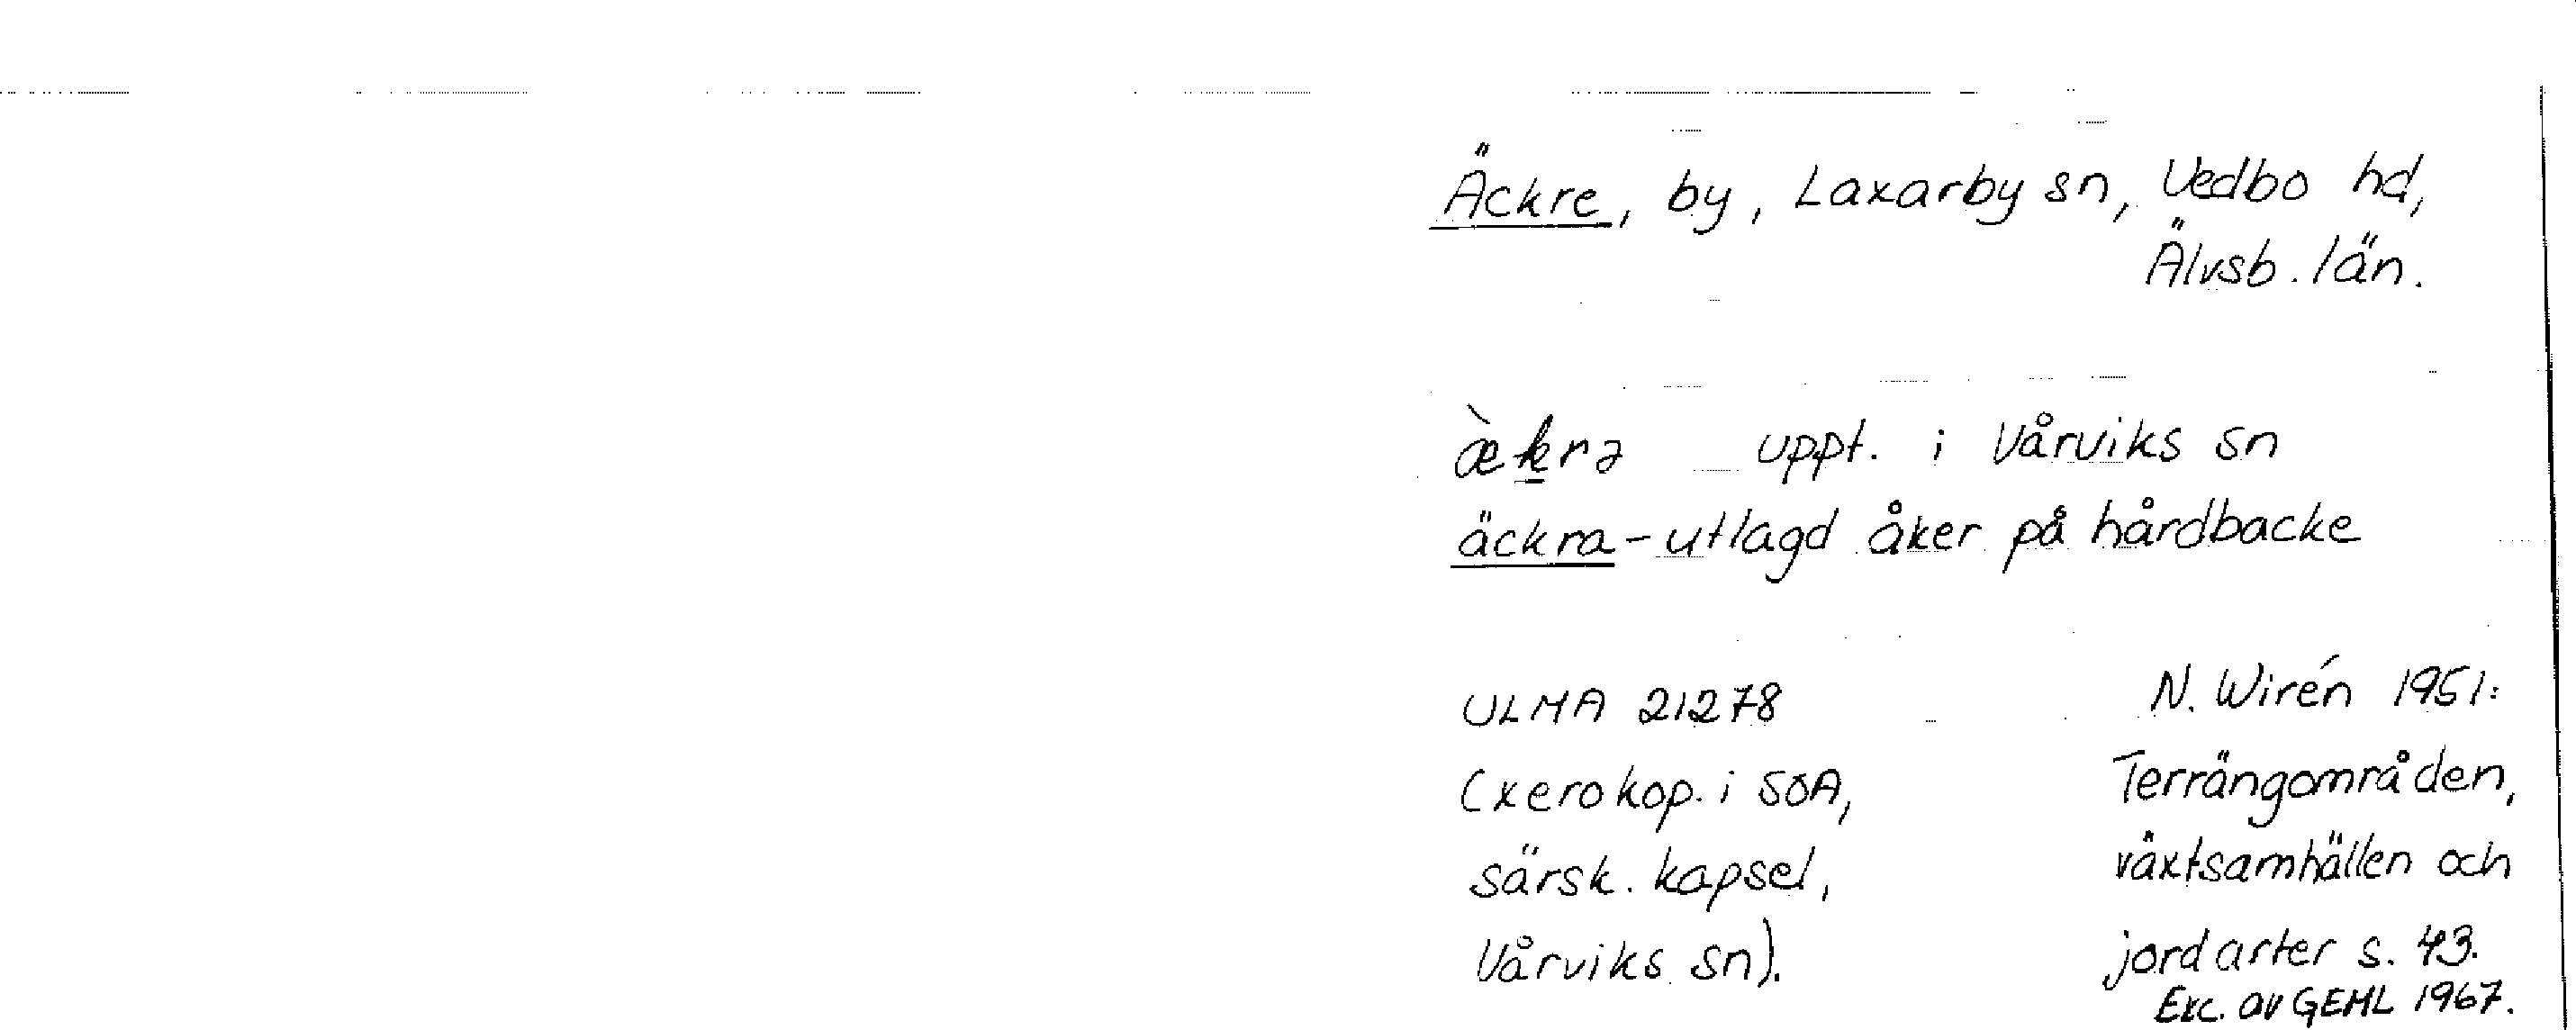 Äckre, by, Laxarby sn, Vedbo hd,
Älvsb. län.
æ̀krə uppt. i Vårviks sn
äckra - utlagd åker på hårdbacke
ULMA 21278
(xerokop. i SOA,
särsk. kapsel,
Vårviks sn).
N. Wirén 1951:
Terrängområden,
växtsamhällen och
jordarter s. 43.
Exc. av GEHL 1967.